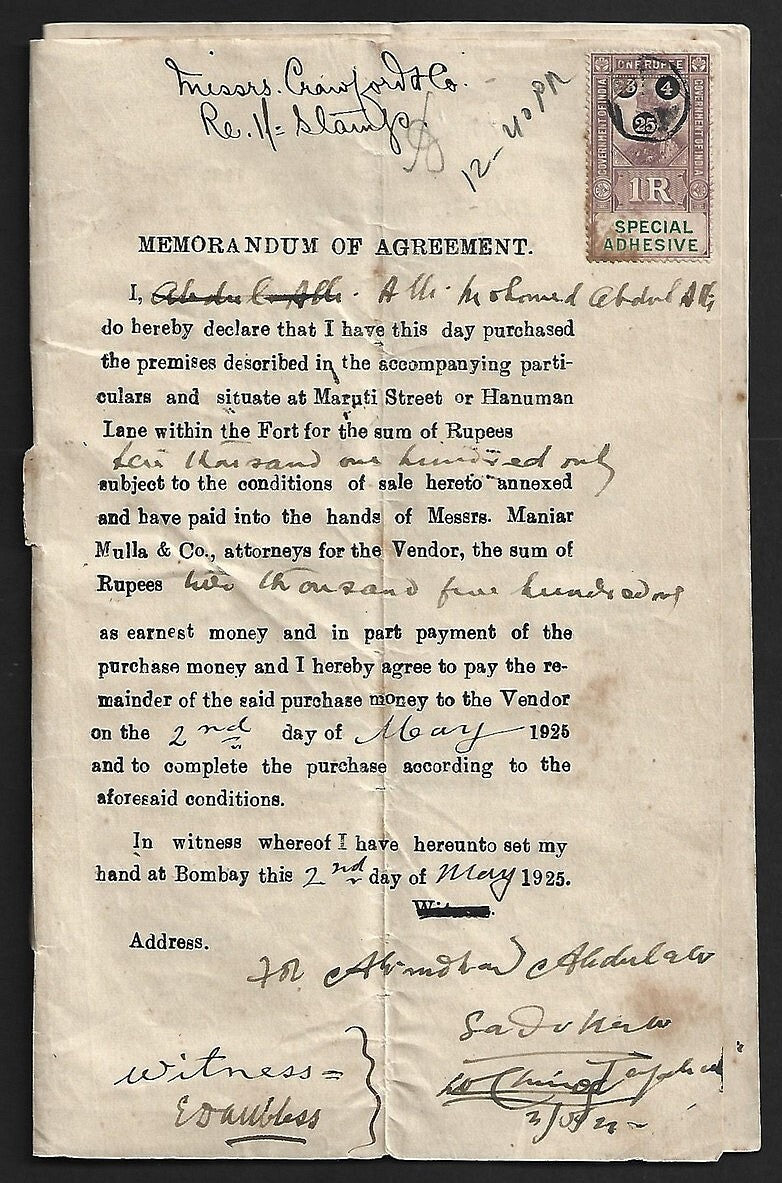 Messrs. Crawford & Co.
Re. 1/= Stamp
12-40 PM
ONE RUPEE
GOVERNMENT OF INDIA
GOVERNMENT OF INDIA
23 4
25
1R
SPECIAL
ADHESIVE
MEMORANDUM OF AGREEMENT.
I, Abdul Alli. Alli Mohomed Abdul Alli
do hereby declare that I have this day purchased
the premises described in the accompanying parti-
culars and situate at Maruti Street or Hanuman
Lane within the Fort for the sum of Rupees
ten thousand one hundred only
subject to the conditions of sale hereto annexed
and have paid into the hands of Messrs. Maniar
Mulla & Co., attorneys for the Vendor, the sum of
Rupees two thousand five hundred only
as earnest money and in part payment of the
purchase money and I hereby agree to pay the re-
mainder of the said purchase money to the Vendor
on the 2nd day of May 1925
and to complete the purchase according to the
aforesaid conditions.
In witness whereof I have hereunto set my
hand at Bombay this 2nd day of May 1925.
Witness.
Address.
for Abdulali
Witness=